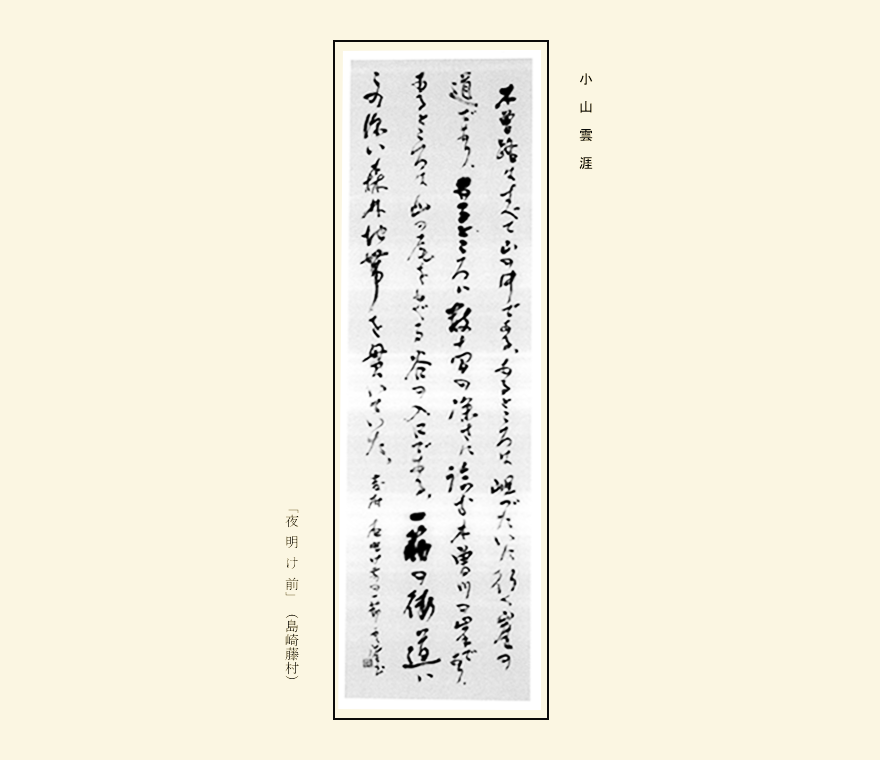 小山雲涯
木曽路はすべて山の中である、あるところは岨づたいに行く崖の
道であり、あるところは数十間の深さに臨む木曽川の岸であり、
あるところは山の尾をめぐる谷の入口である、一筋の街道は
この深い森林地帯を貫いていた、 夜明け前の一節 雲涯書
「夜明け前」(島崎藤村)